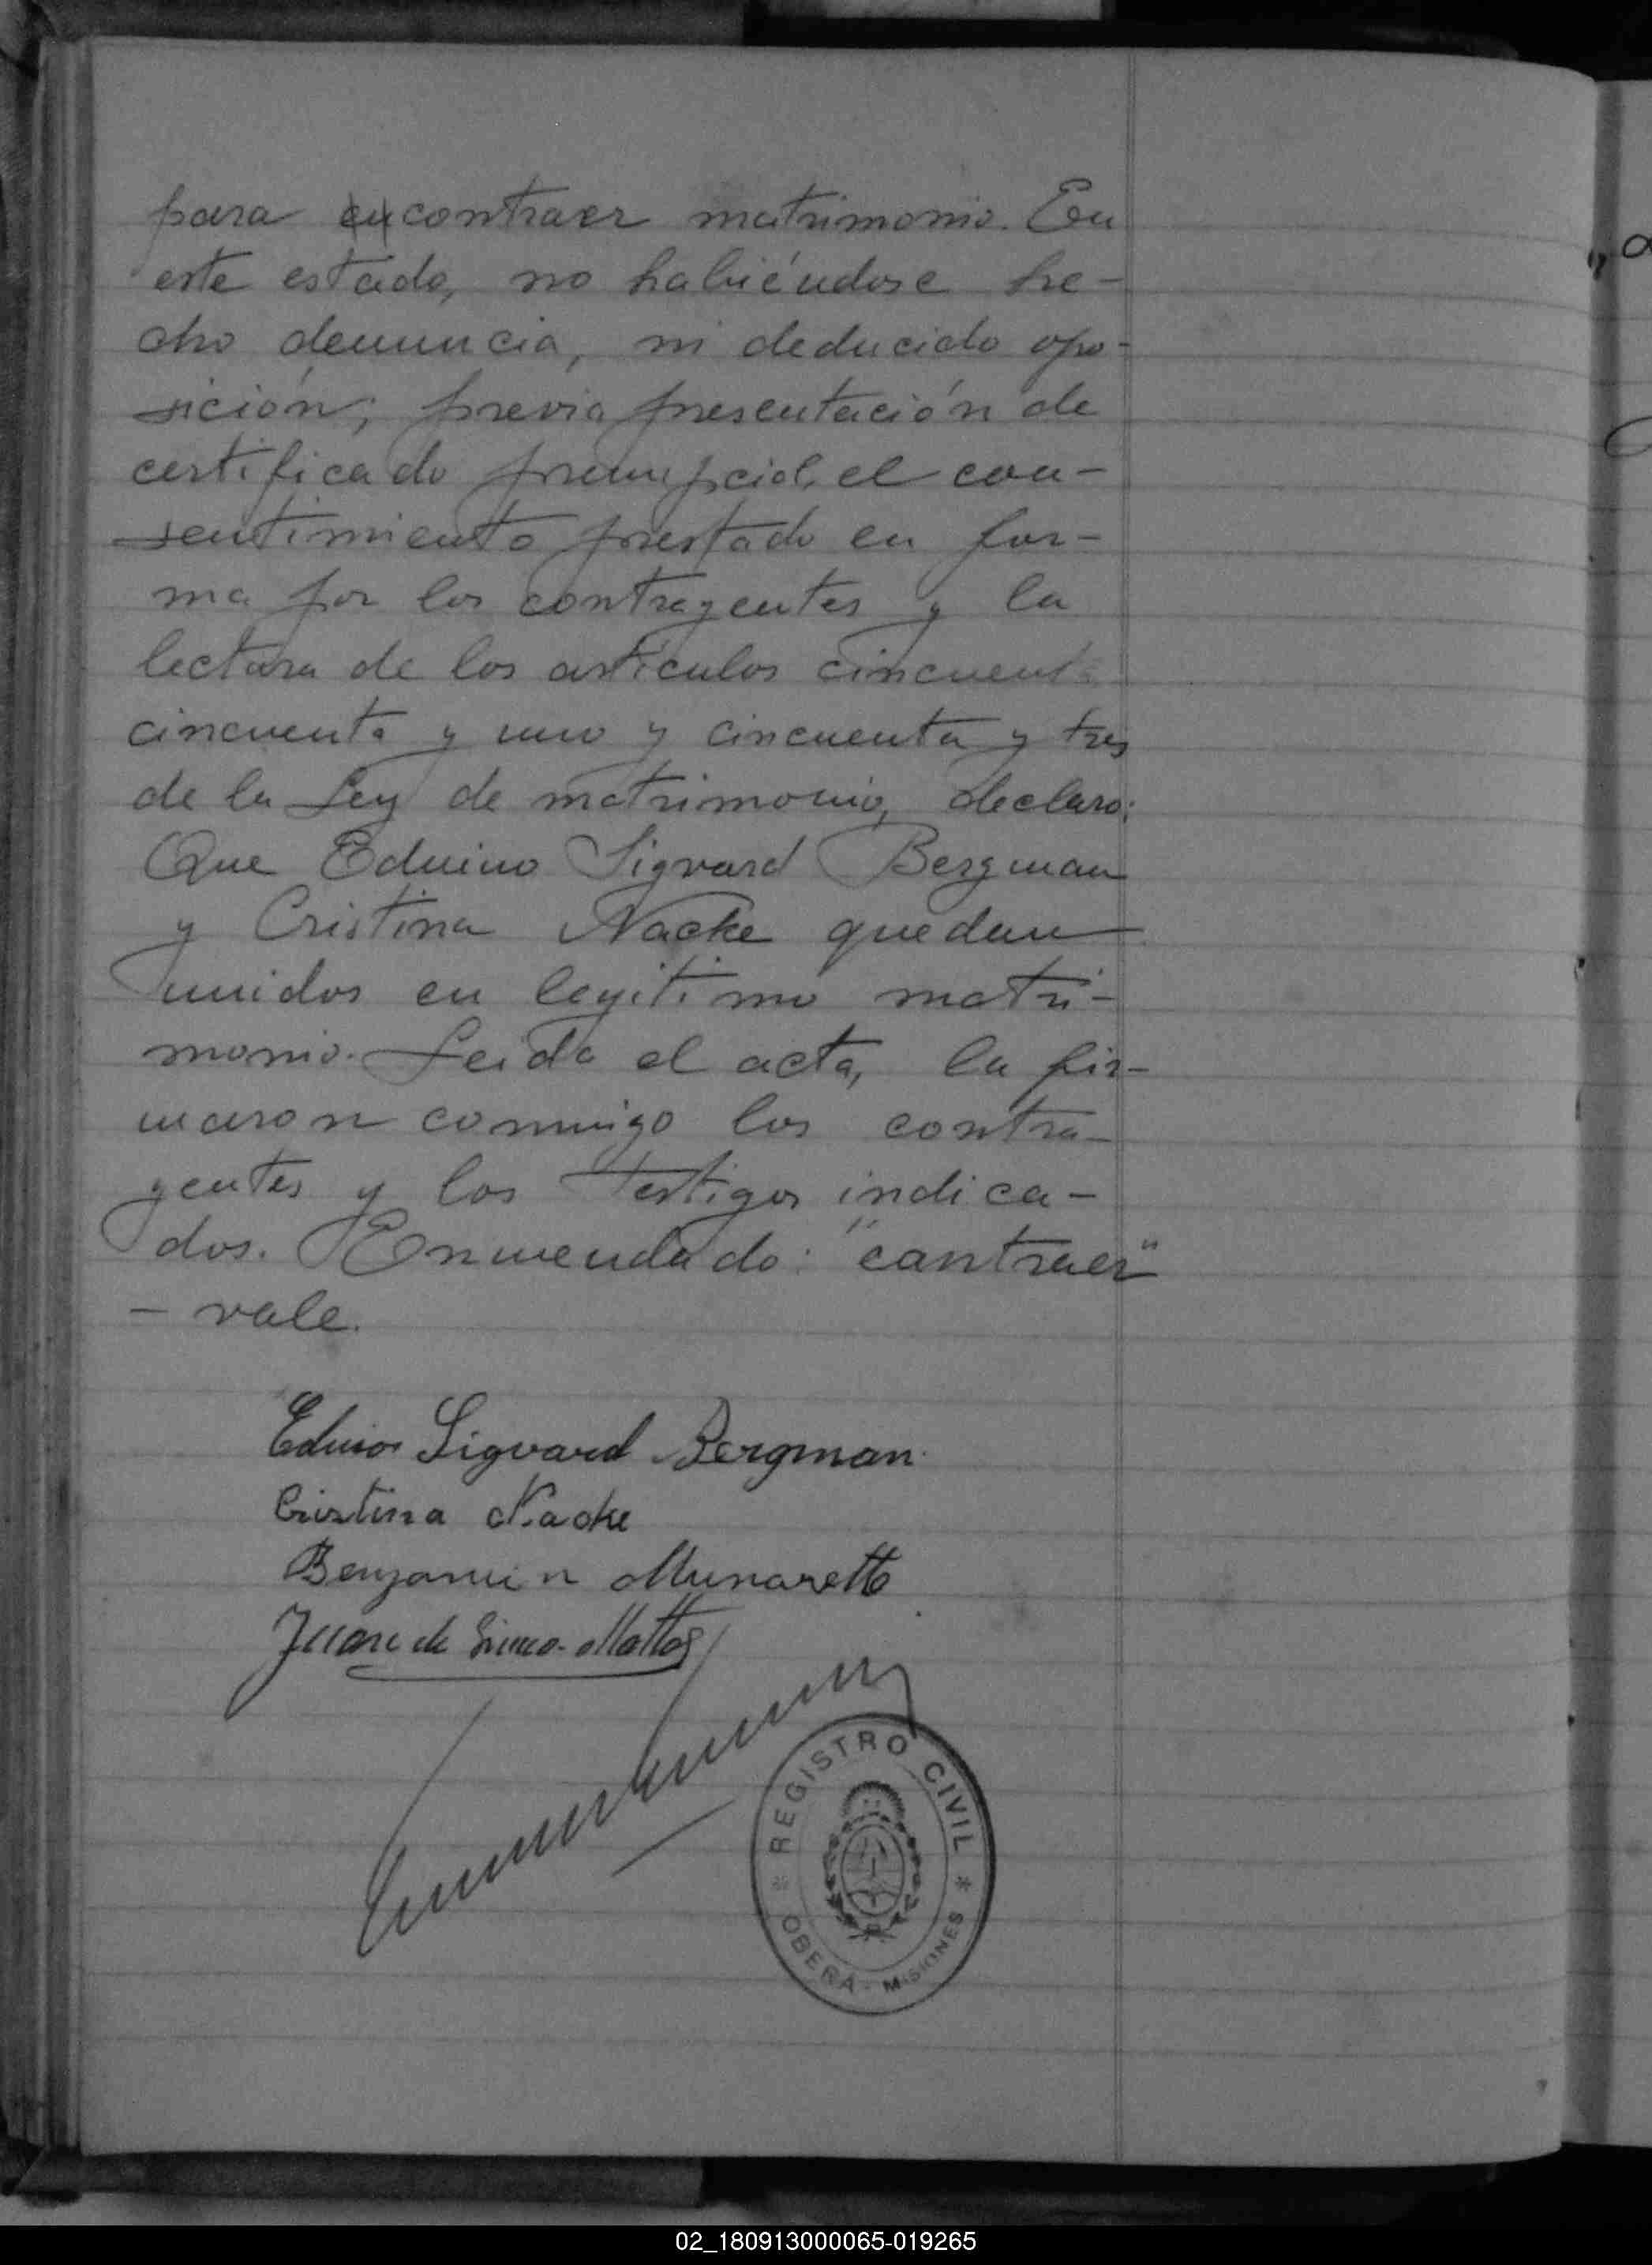 para contraer matrimonio. En
este estado, no habiéndose he-
cho denuncia, ni deducido opo-
sición; previa presentación de
certificado prenupcial, el con-
sentimiento prestado en for-
ma por los contrayentes y la
lectura de los artículos cincuenta
cincuenta y uno y cincuenta y tres
de la Ley de matrimonio, declaro:
Que Eduino Sigvard Bergman
y Cristina Nacke quedan
unidos en legitimo matri-
monio. Leida el acta, la fir-
maron conmigo los contra-
yentes y los testigos indica-
dos. Enmendado: "contraer"
- vale.
Eduino Sigvard Bergman
Cristina Nacke
Benjamin Munaretto
Juan de Mattos
REGISTRO CIVIL
OBERÁ - MISIONES
02_180913000065-019265